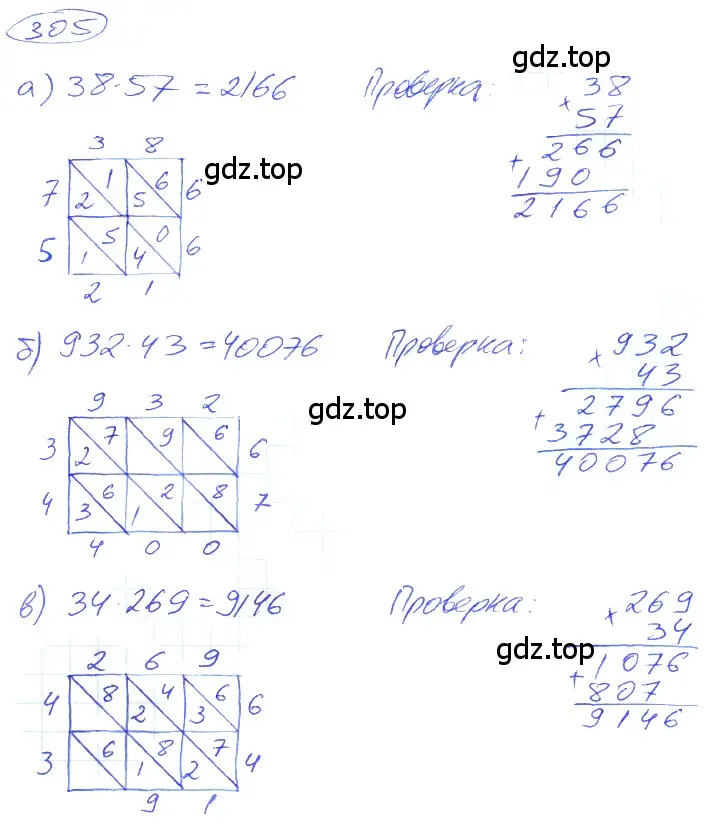 305
gdz.top
а) 38·57 = 2166 Проверка: 38
× 57
+ 266
190
2166
3 8
gdz.top
7 1 2 6 5 6
5 5 1 0 4 6
2 1
б) 932·43 = 40076 Проверка: 932
× 43
+ 2796
3728
40076
9 3 2
gdz.top
3 7 2 9 6 6
4 6 3 2 1 8 7
4 0 0
в) 34·269 = 9146 Проверка: 269
× 34
+ 1076
807
9146
2 6 9
gdz.top
4 8 4 2 6 3 6
3 6 8 1 7 2 4
9 1